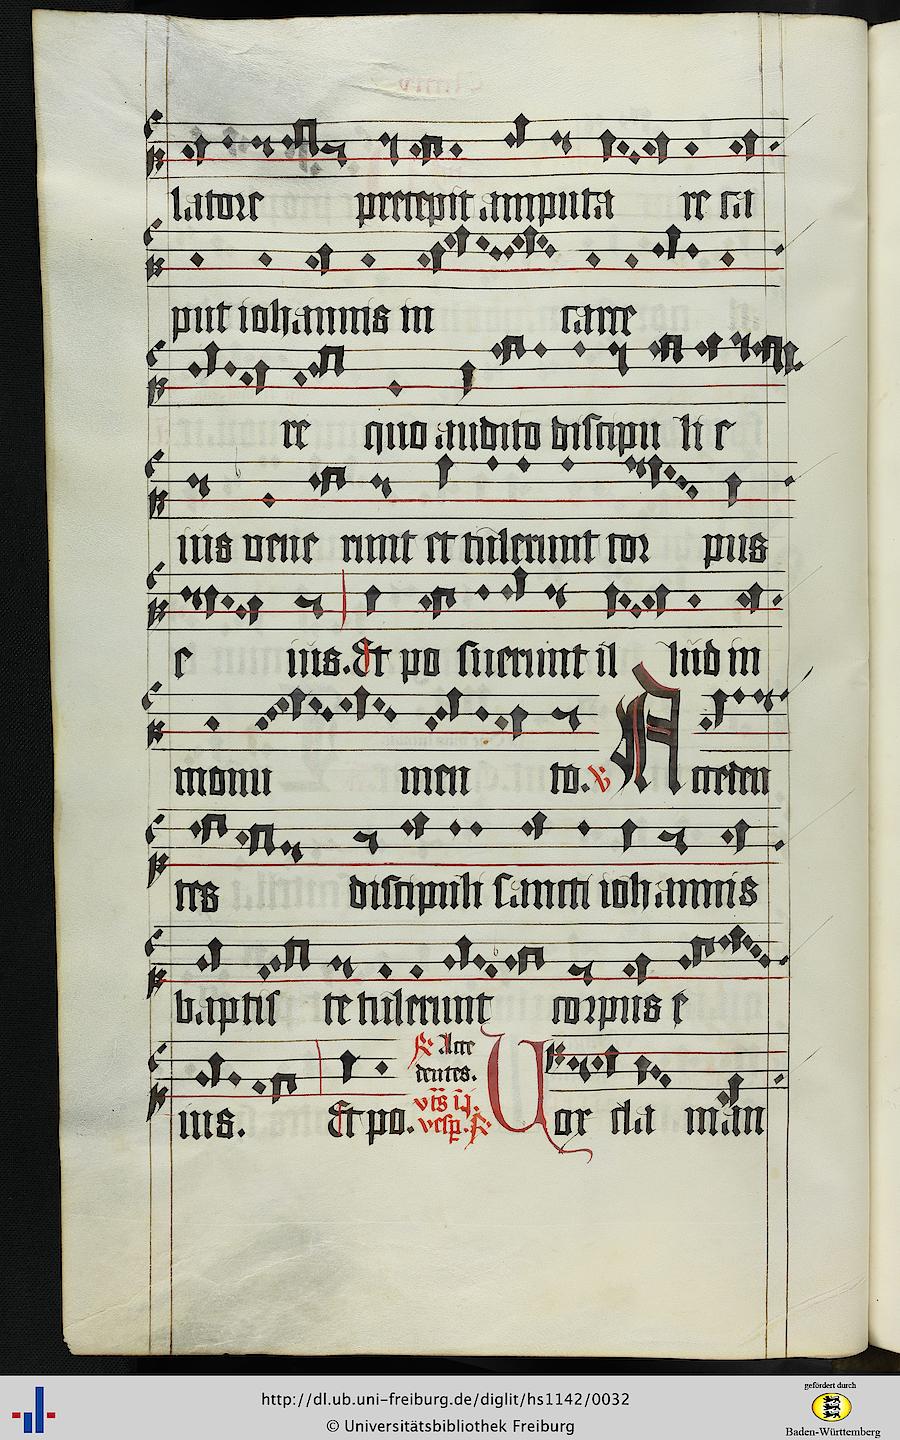 latore precepit amputa re ca
put iohannis in carce
re quo audito discipu li e
ius vene runt et tulerunt cor pus
e ius. Et po suerunt il lud in
monu men to. V Acceden
tes discipuli sancti iohannis
baptis te tulerunt corpus e
ius. Et po. R Acce
dentes.
vts ij.
vesp. R Vor cla man
http://dl.ub.uni-freiburg.de/diglit/hs1142/0032
© Universitätsbibliothek Freiburg
gefördert durch
Baden-Württemberg